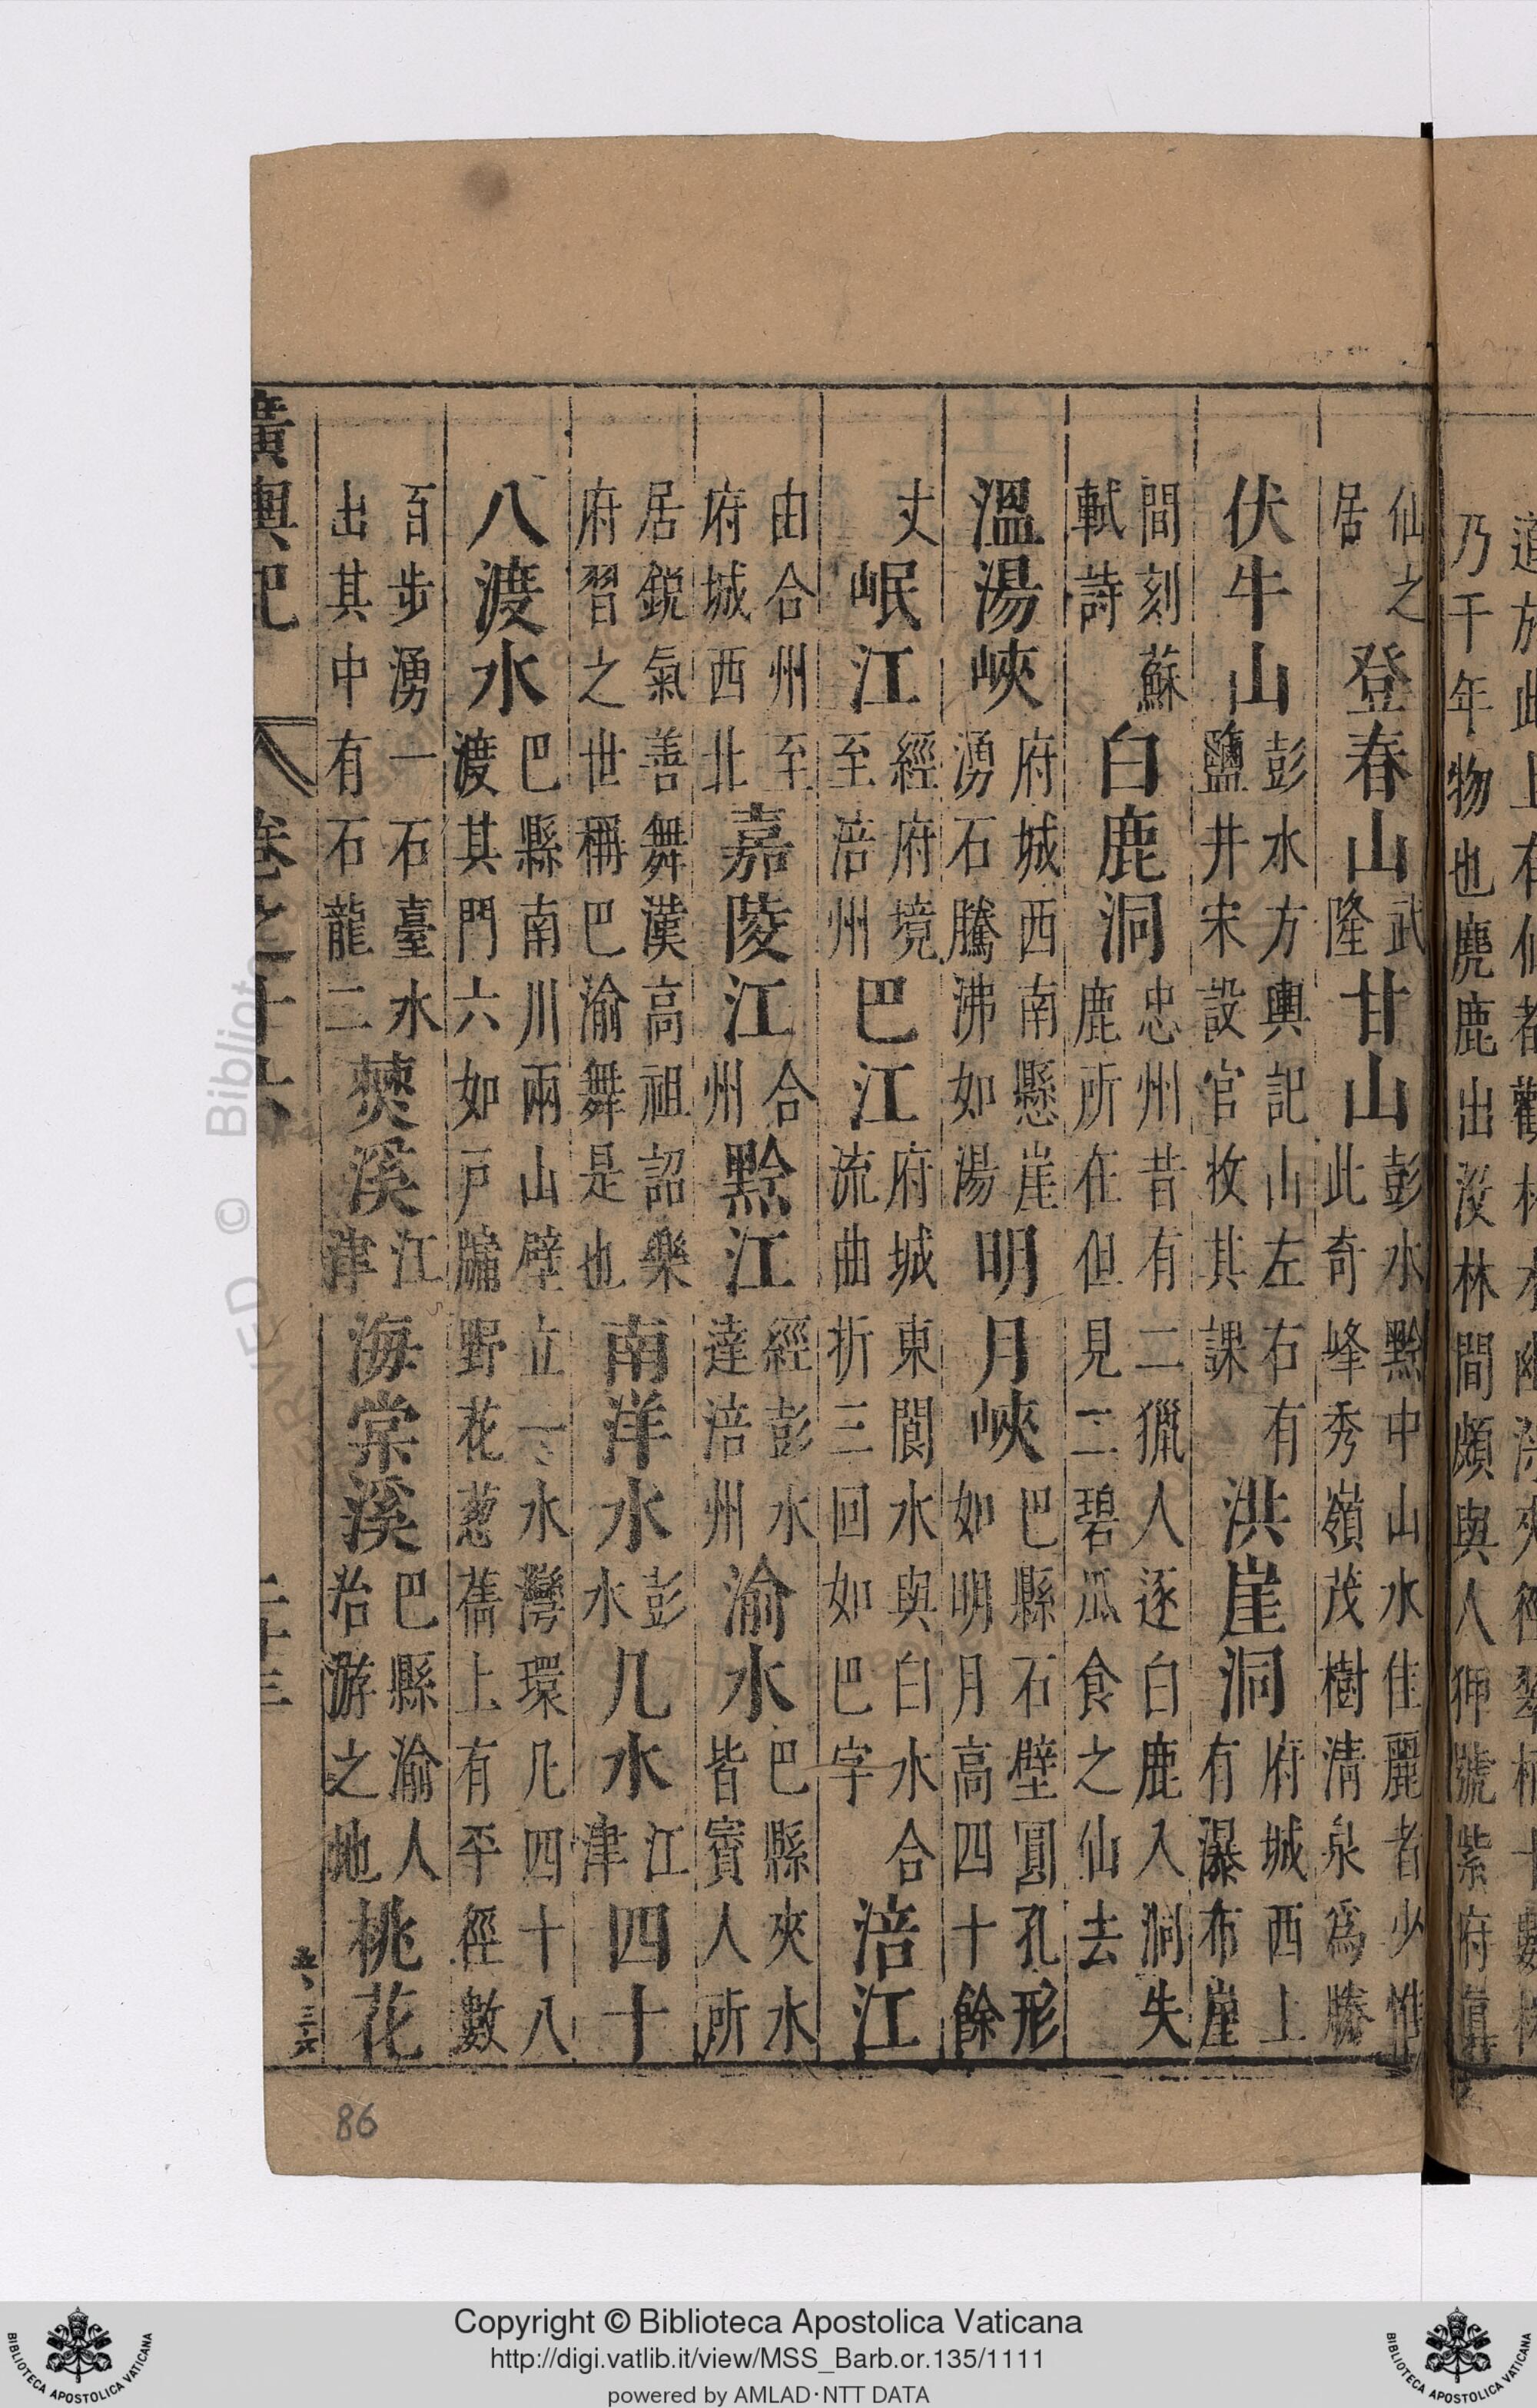 道於此上有仙都觀林木幽深夾徑翠柏十數株
乃千年物也麂鹿出沒林間頗與人狎號紫府真
仙之居登春山武隆甘山彭水黔中山水佳麗者少惟此奇峰秀嶺茂樹清泉爲勝
伏牛山彭水方輿記山左右有鹽井宋設官收其課洪崖洞府城西上有瀑布崖
間刻蘇軾詩白鹿洞忠州昔有二獵人逐白鹿入洞失鹿所在但見二碧瓜食之仙去
溫湯峽府城西南懸崖湧石騰沸如湯明月峽巴縣石壁圓孔形如明月高四十餘
丈岷江經府境至涪州巴江府城東閬水與白水合流曲折三回如巴字涪江
由合州至府城西北嘉陵江合州黔江經彭水達涪州渝水巴縣夾水皆賨人所
居銳氣善舞漢高祖詔樂府習之世稱巴渝舞是也南洋水彭水几水江津四十
八渡水巴縣南川兩山壁立一水灣環凡四十八渡其門六如戶牖野花葱蒨上有平徑數
百步湧一石臺水出其中有石龍二僰溪江津海棠溪巴縣渝人治游之地桃花
廣輿記 卷之十六 二十三
86
Copyright © Biblioteca Apostolica Vaticana
http://digi.vatlib.it/view/MSS_Barb.or.135/1111
powered by AMLAD·NTT DATA
BIBLIOTECA APOSTOLICA VATICANA
BIBLIOTECA APOSTOLICA VATICANA